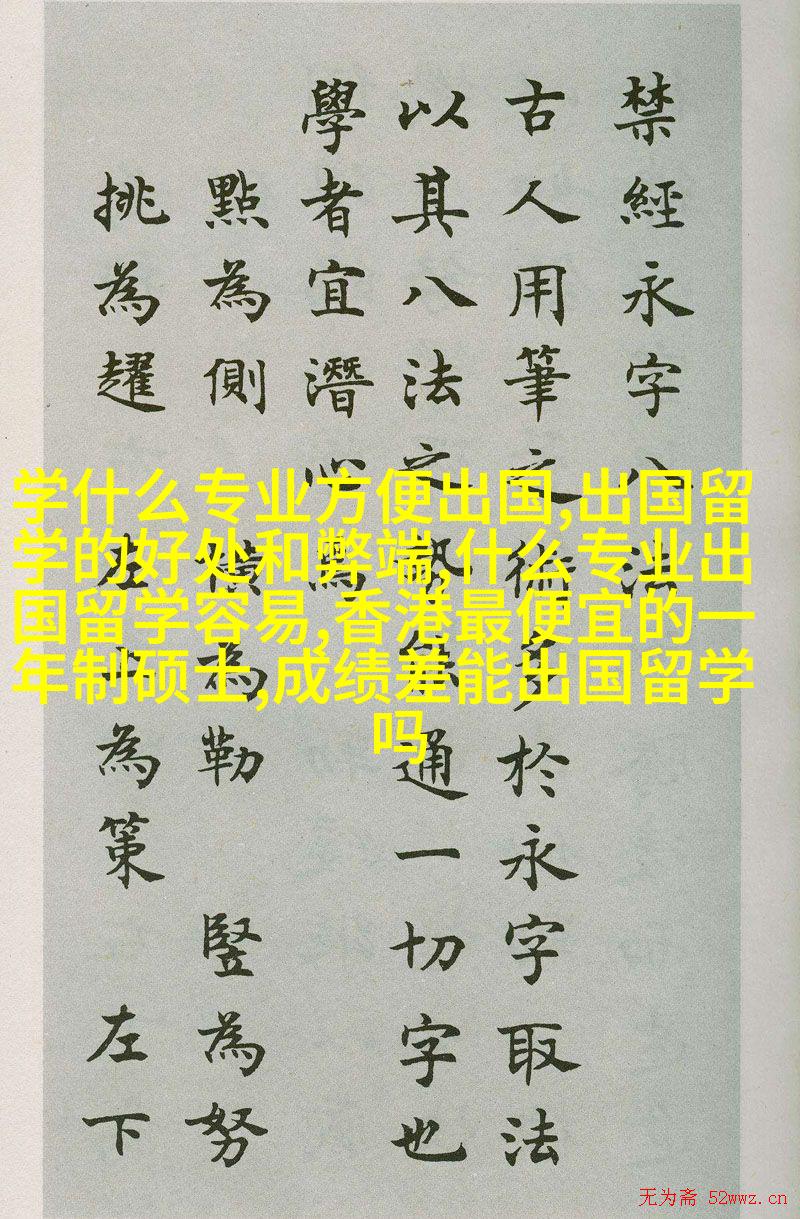 禁經永字八法
古人用筆之術多於永字取法
以其八法之勢能通一切字也
學者宜潛心焉
點為側 橫為勒 豎為努
挑為趯 左上為策 左下
学什么专业方便出国,出国留
学的好处和弊端,什么专业出
国留学容易,香港最便宜的一
年制硕士,成绩差能出国留学
吗
无为斋 52wwz.cn